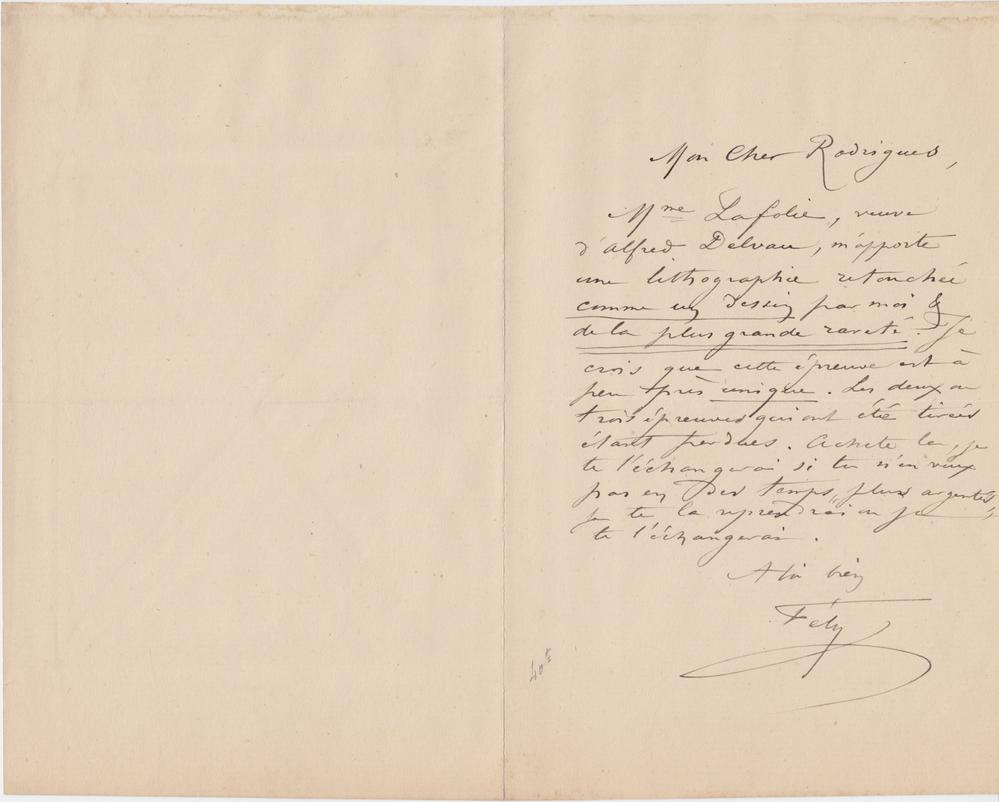 Mon Cher Rodrigues,
Mme Lafolie, veuve
d'alfred Delvau, m'apporte
une lithographie retouchée
comme un dessin par moi &
de la plus grande rareté. Je
crois que cette épreuve est à
peu près unique. Les deux ou
trois épreuves qui ont été tirées
étant perdues. Achete la, je
te l'échangerai si tu n'en veux
pas en des temps "plus argentés"
je te la reprendrai ou je
te l'échangerai.
A toi bien
Fély